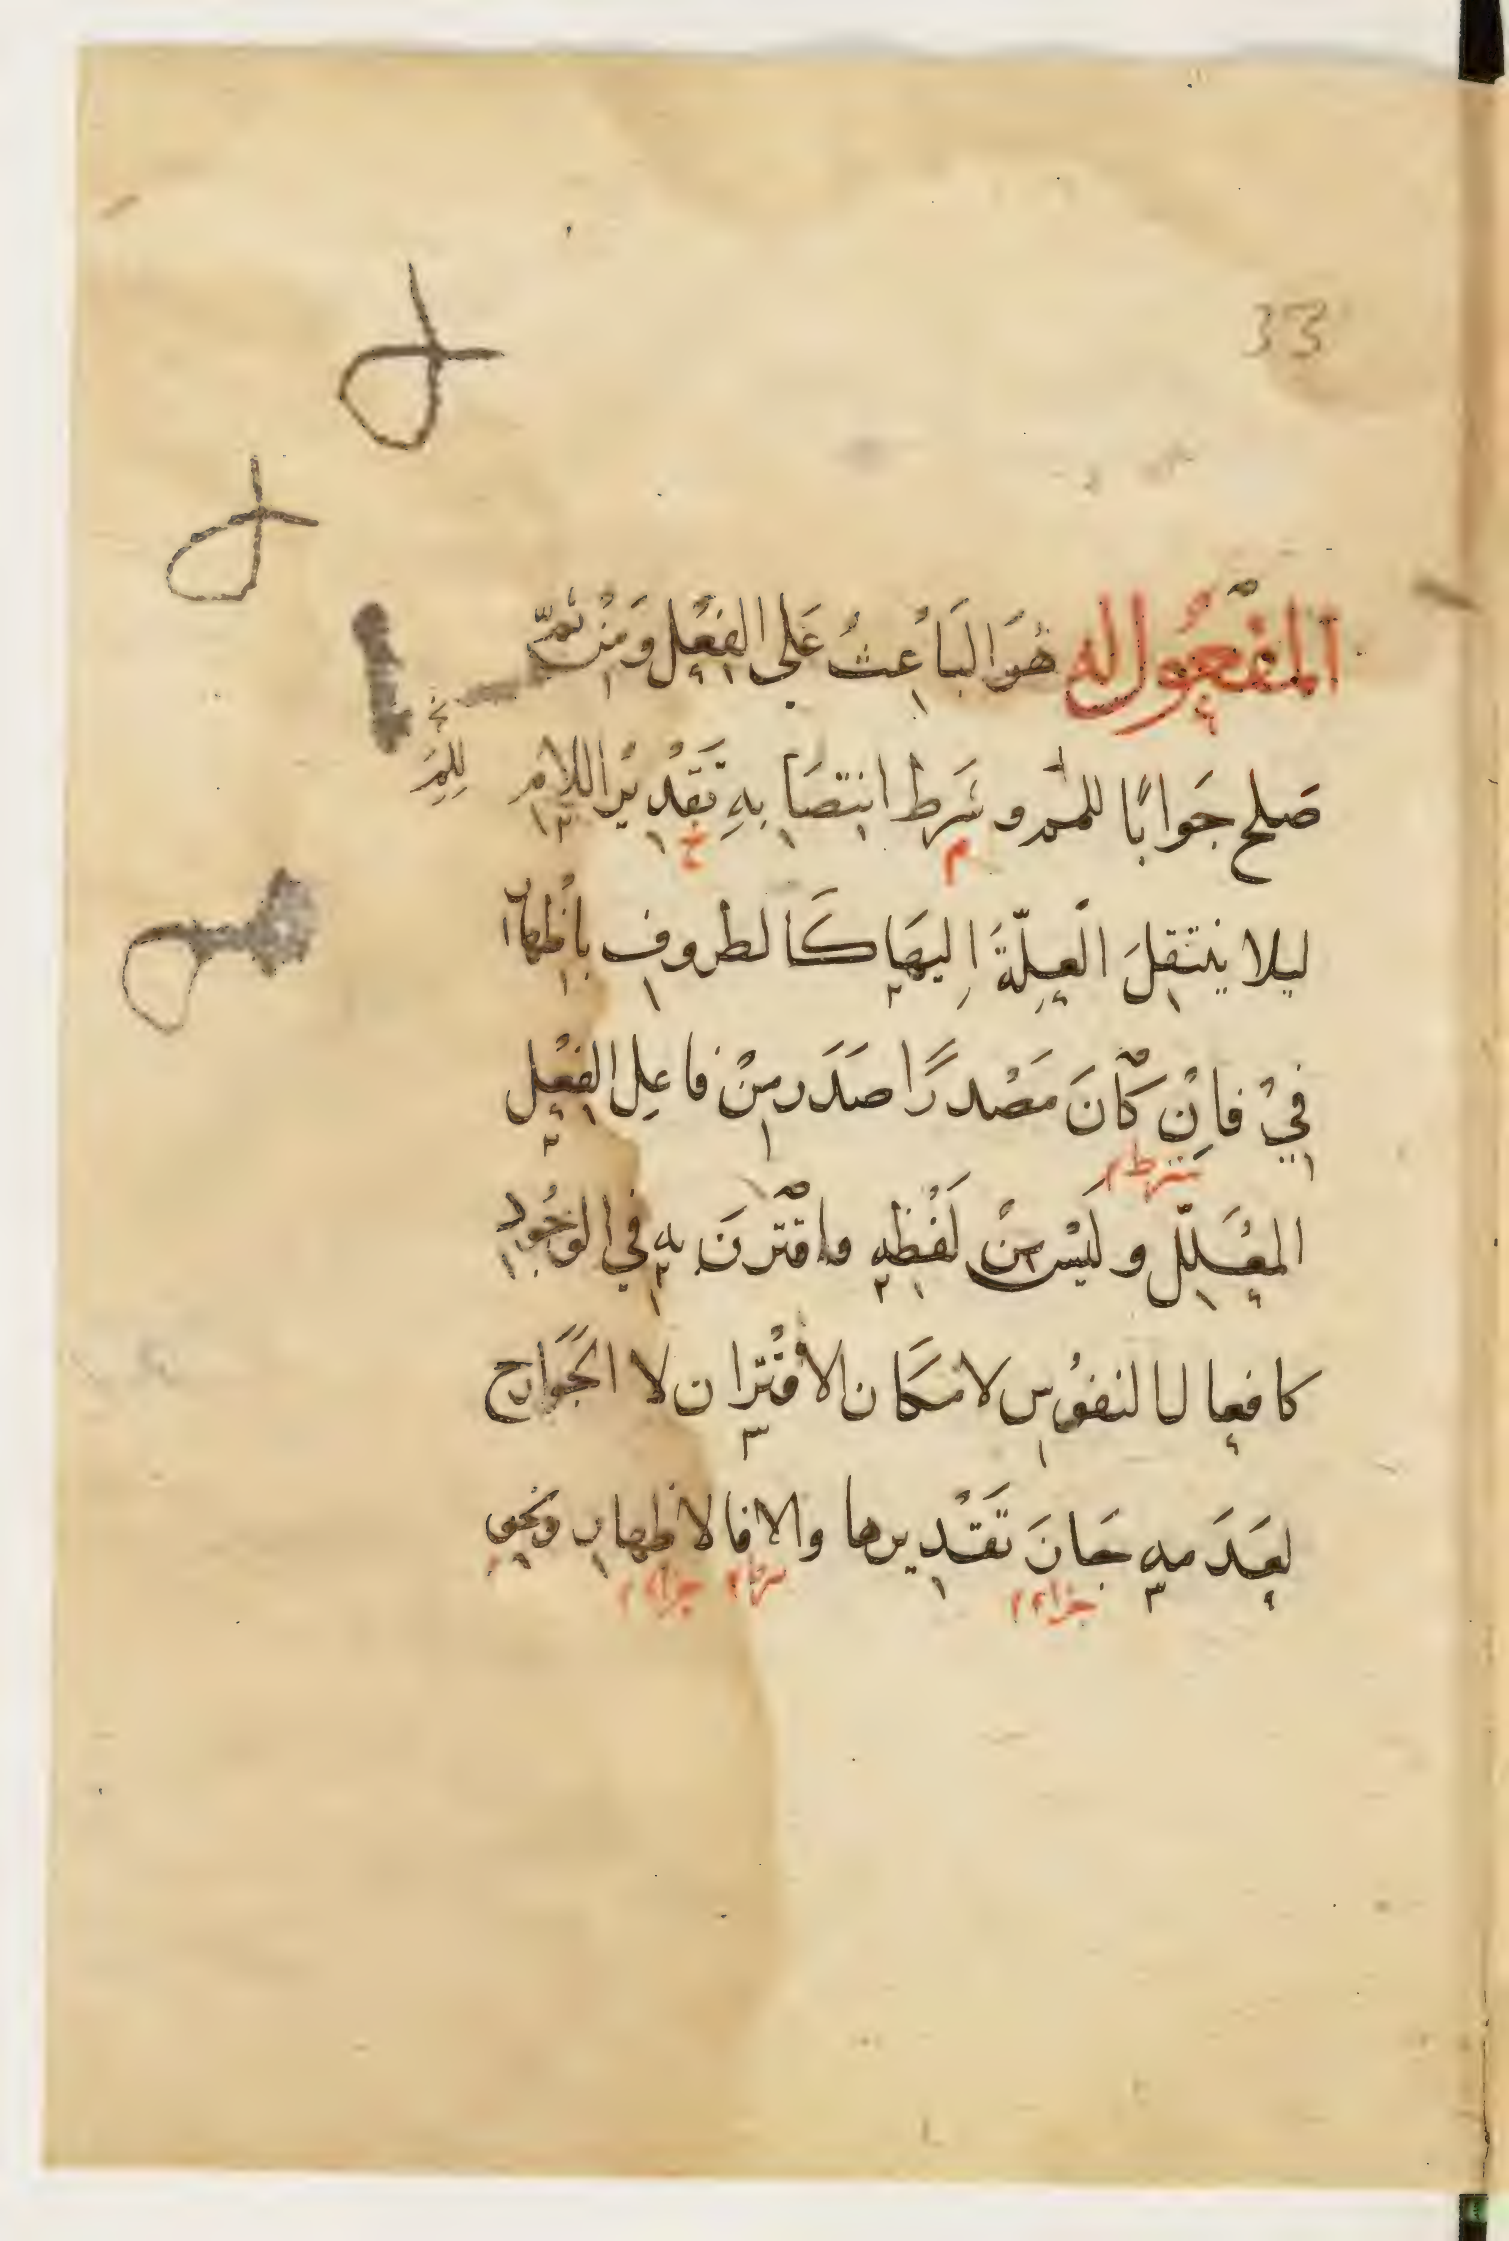 33
المفْعُول له هُوَ البَاعِثُ عَلى الفِعْل وَمِنْ ثمّ
للِمَ
صَلح جَوابًا للمَ و شَرط انتصَابهِ تَقْدْيْر اللام
م خ
ليلا ينتَقِلَ العِلّةَ اِليهَا كَالظروف باظهار
فيْ فاِنْ كَانَ مَصْدرًا صَدَر مِنْ فاعِل الفِعْل
شرط م
المعْلَلّ و لَيْسَ مِنْ لَفْظِهِ واقتَرنَ بِهِ في الوجُود
كافعال النفوُس لامكَان الاقْتَران لا الجَوَارح
لِعَدَمهِ جَانَ تَقْديرها والا فالاظهار ونحو
جزاء م شرط جزاء